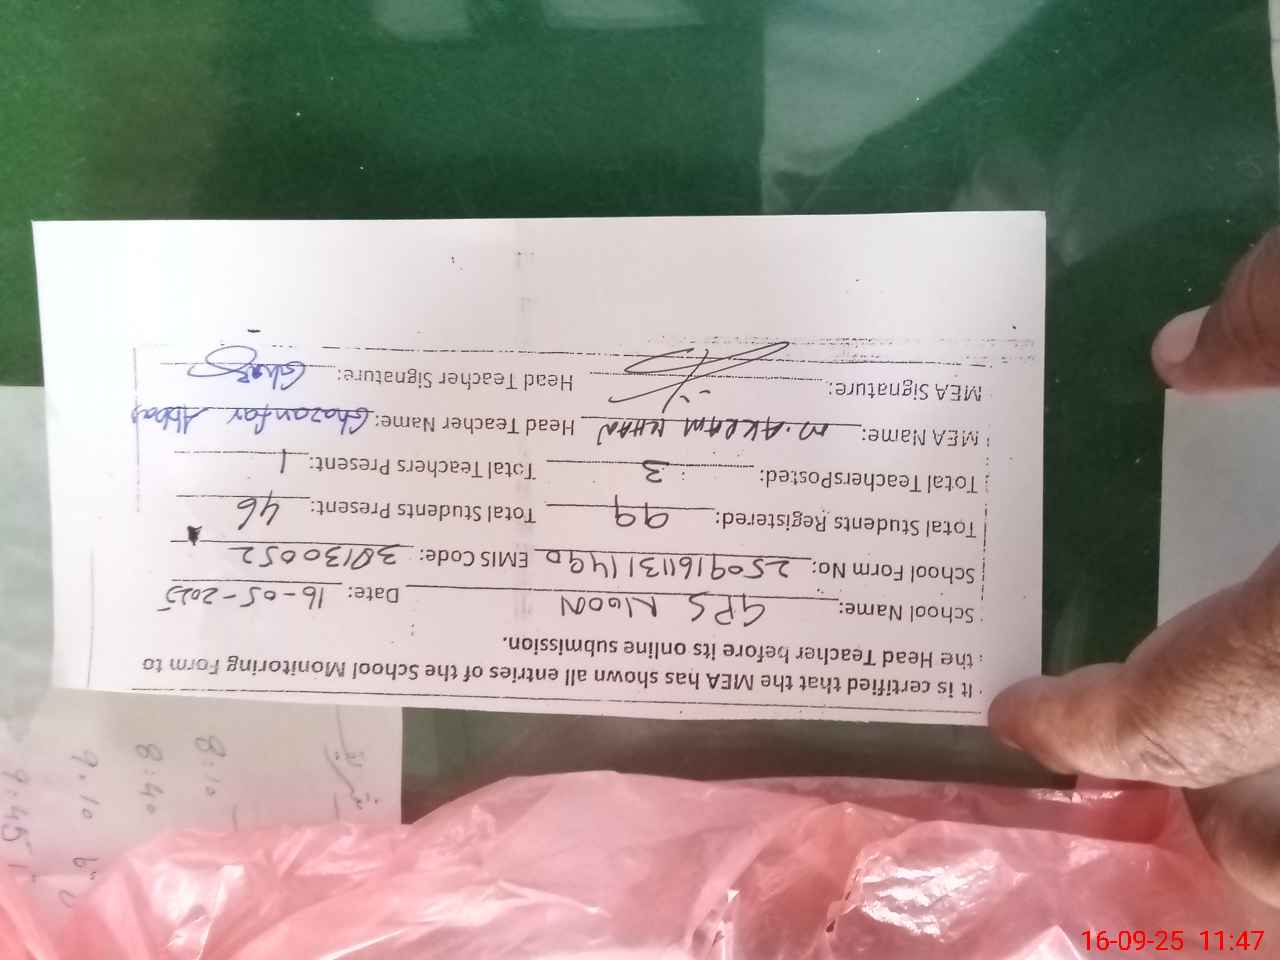 It is certified that the MEA has shown all entries of the School Monitoring Form to
the Head Teacher before its online submission.
School Name: GPS NOON Date: 16-05-2025
School Form No: 2509161131149D EMIS Code: 38130052
Total Students Registered: 99 Total Students Present: 46
Total TeachersPosted: 3 Total Teachers Present: 1
MEA Name: M. AKRAM KHAN Head Teacher Name: Ghazanfar Abbas
MEA Signature: Head Teacher Signature: Ghaz
8:10
8:40
9.10
9:45
16-09-25 11:47